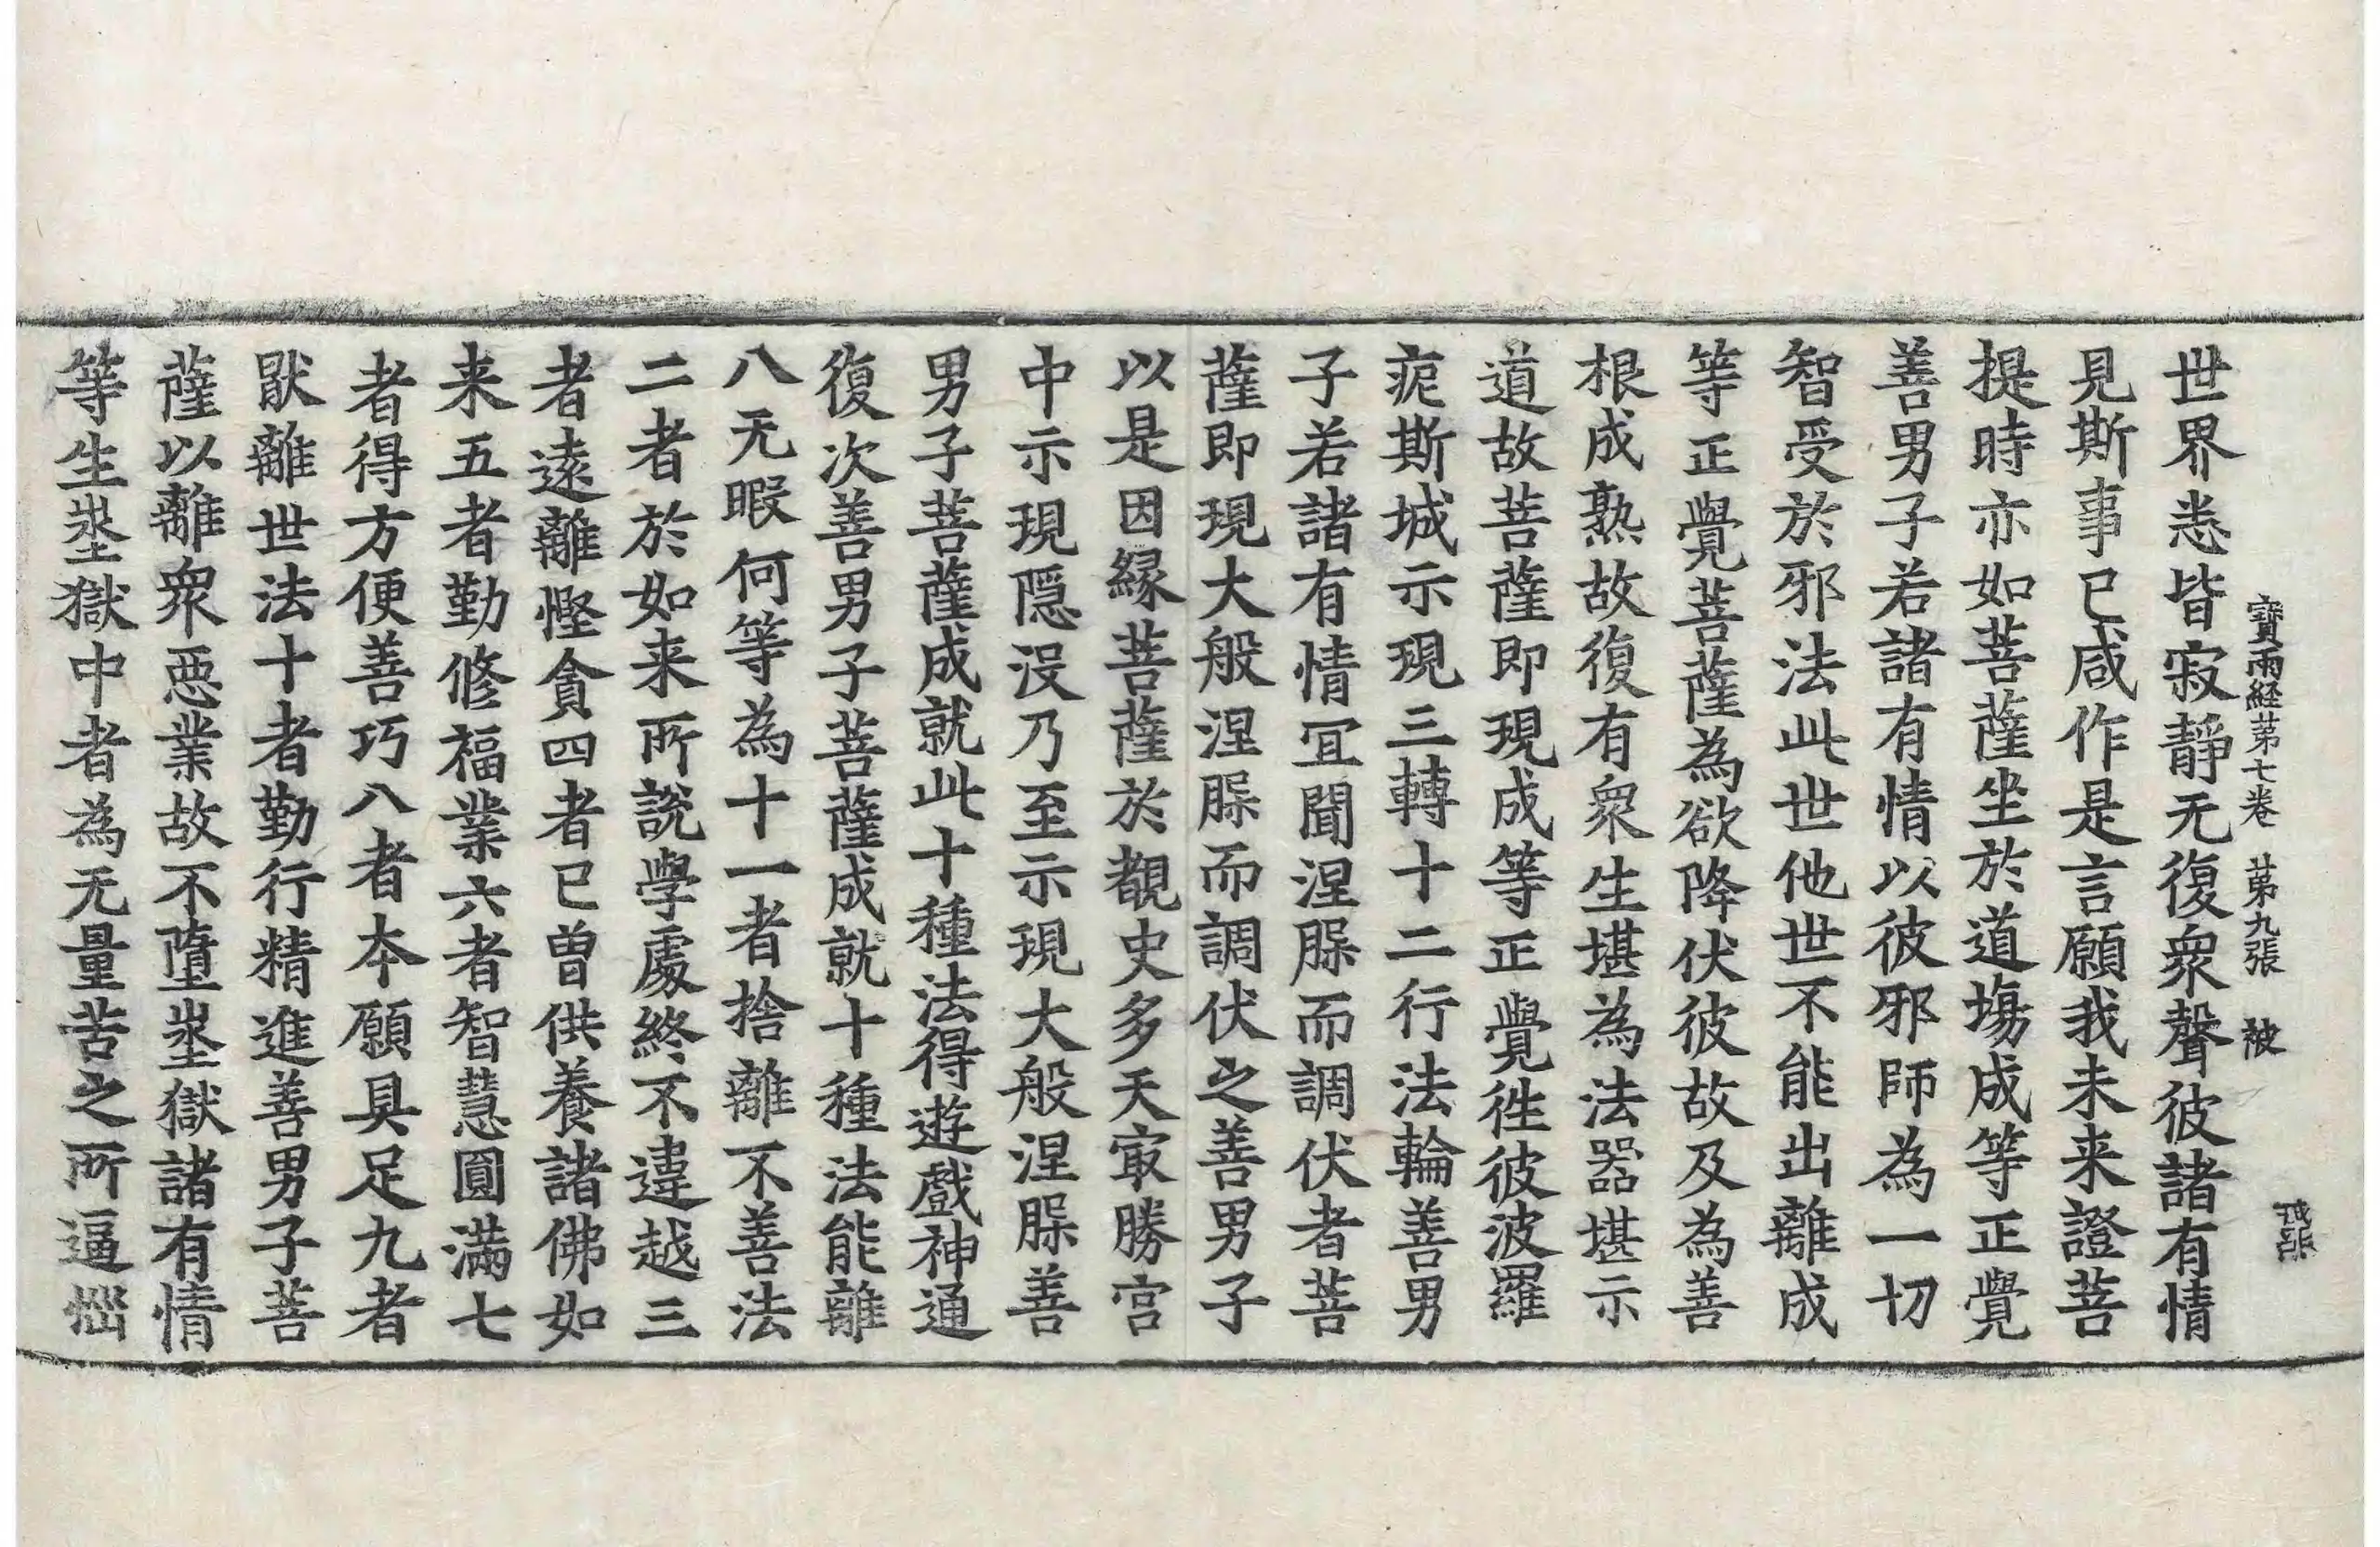 寶雨経苐七卷 苐九張 被
世界悉皆寂靜无復衆聲彼諸有情
見斯事已咸作是言願我未来證菩
提時亦如菩薩坐於道場成等正覺
善男子若諸有情以彼邪師為一切
智受於邪法此世他世不能出離成
等正覺菩薩為欲降伏彼故及為善
根成熟故復有衆生堪為法器堪示
道故菩薩即現成等正覺徃彼波羅
痆斯城示現三轉十二行法輪善男
子若諸有情冝聞涅槃而調伏者菩
薩即現大般涅槃而調伏之善男子
以是因縁菩薩於覩史多天㝡勝宮
中示現隱没乃至示現大般涅槃善
男子菩薩成就此十種法得遊戲神通
復次善男子菩薩成就十種法能離
八无暇何等為十一者捨離不善法
二者於如来所說學處終不違越三
者遠離慳貪四者已曾供養諸佛如
来五者勤修福業六者智慧圓滿七
者得方便善巧八者夲願具足九者
猒離世法十者勤行精進善男子菩
薩以離衆惡業故不墮埊獄諸有情
等生埊獄中者為无量苦之所逼惱